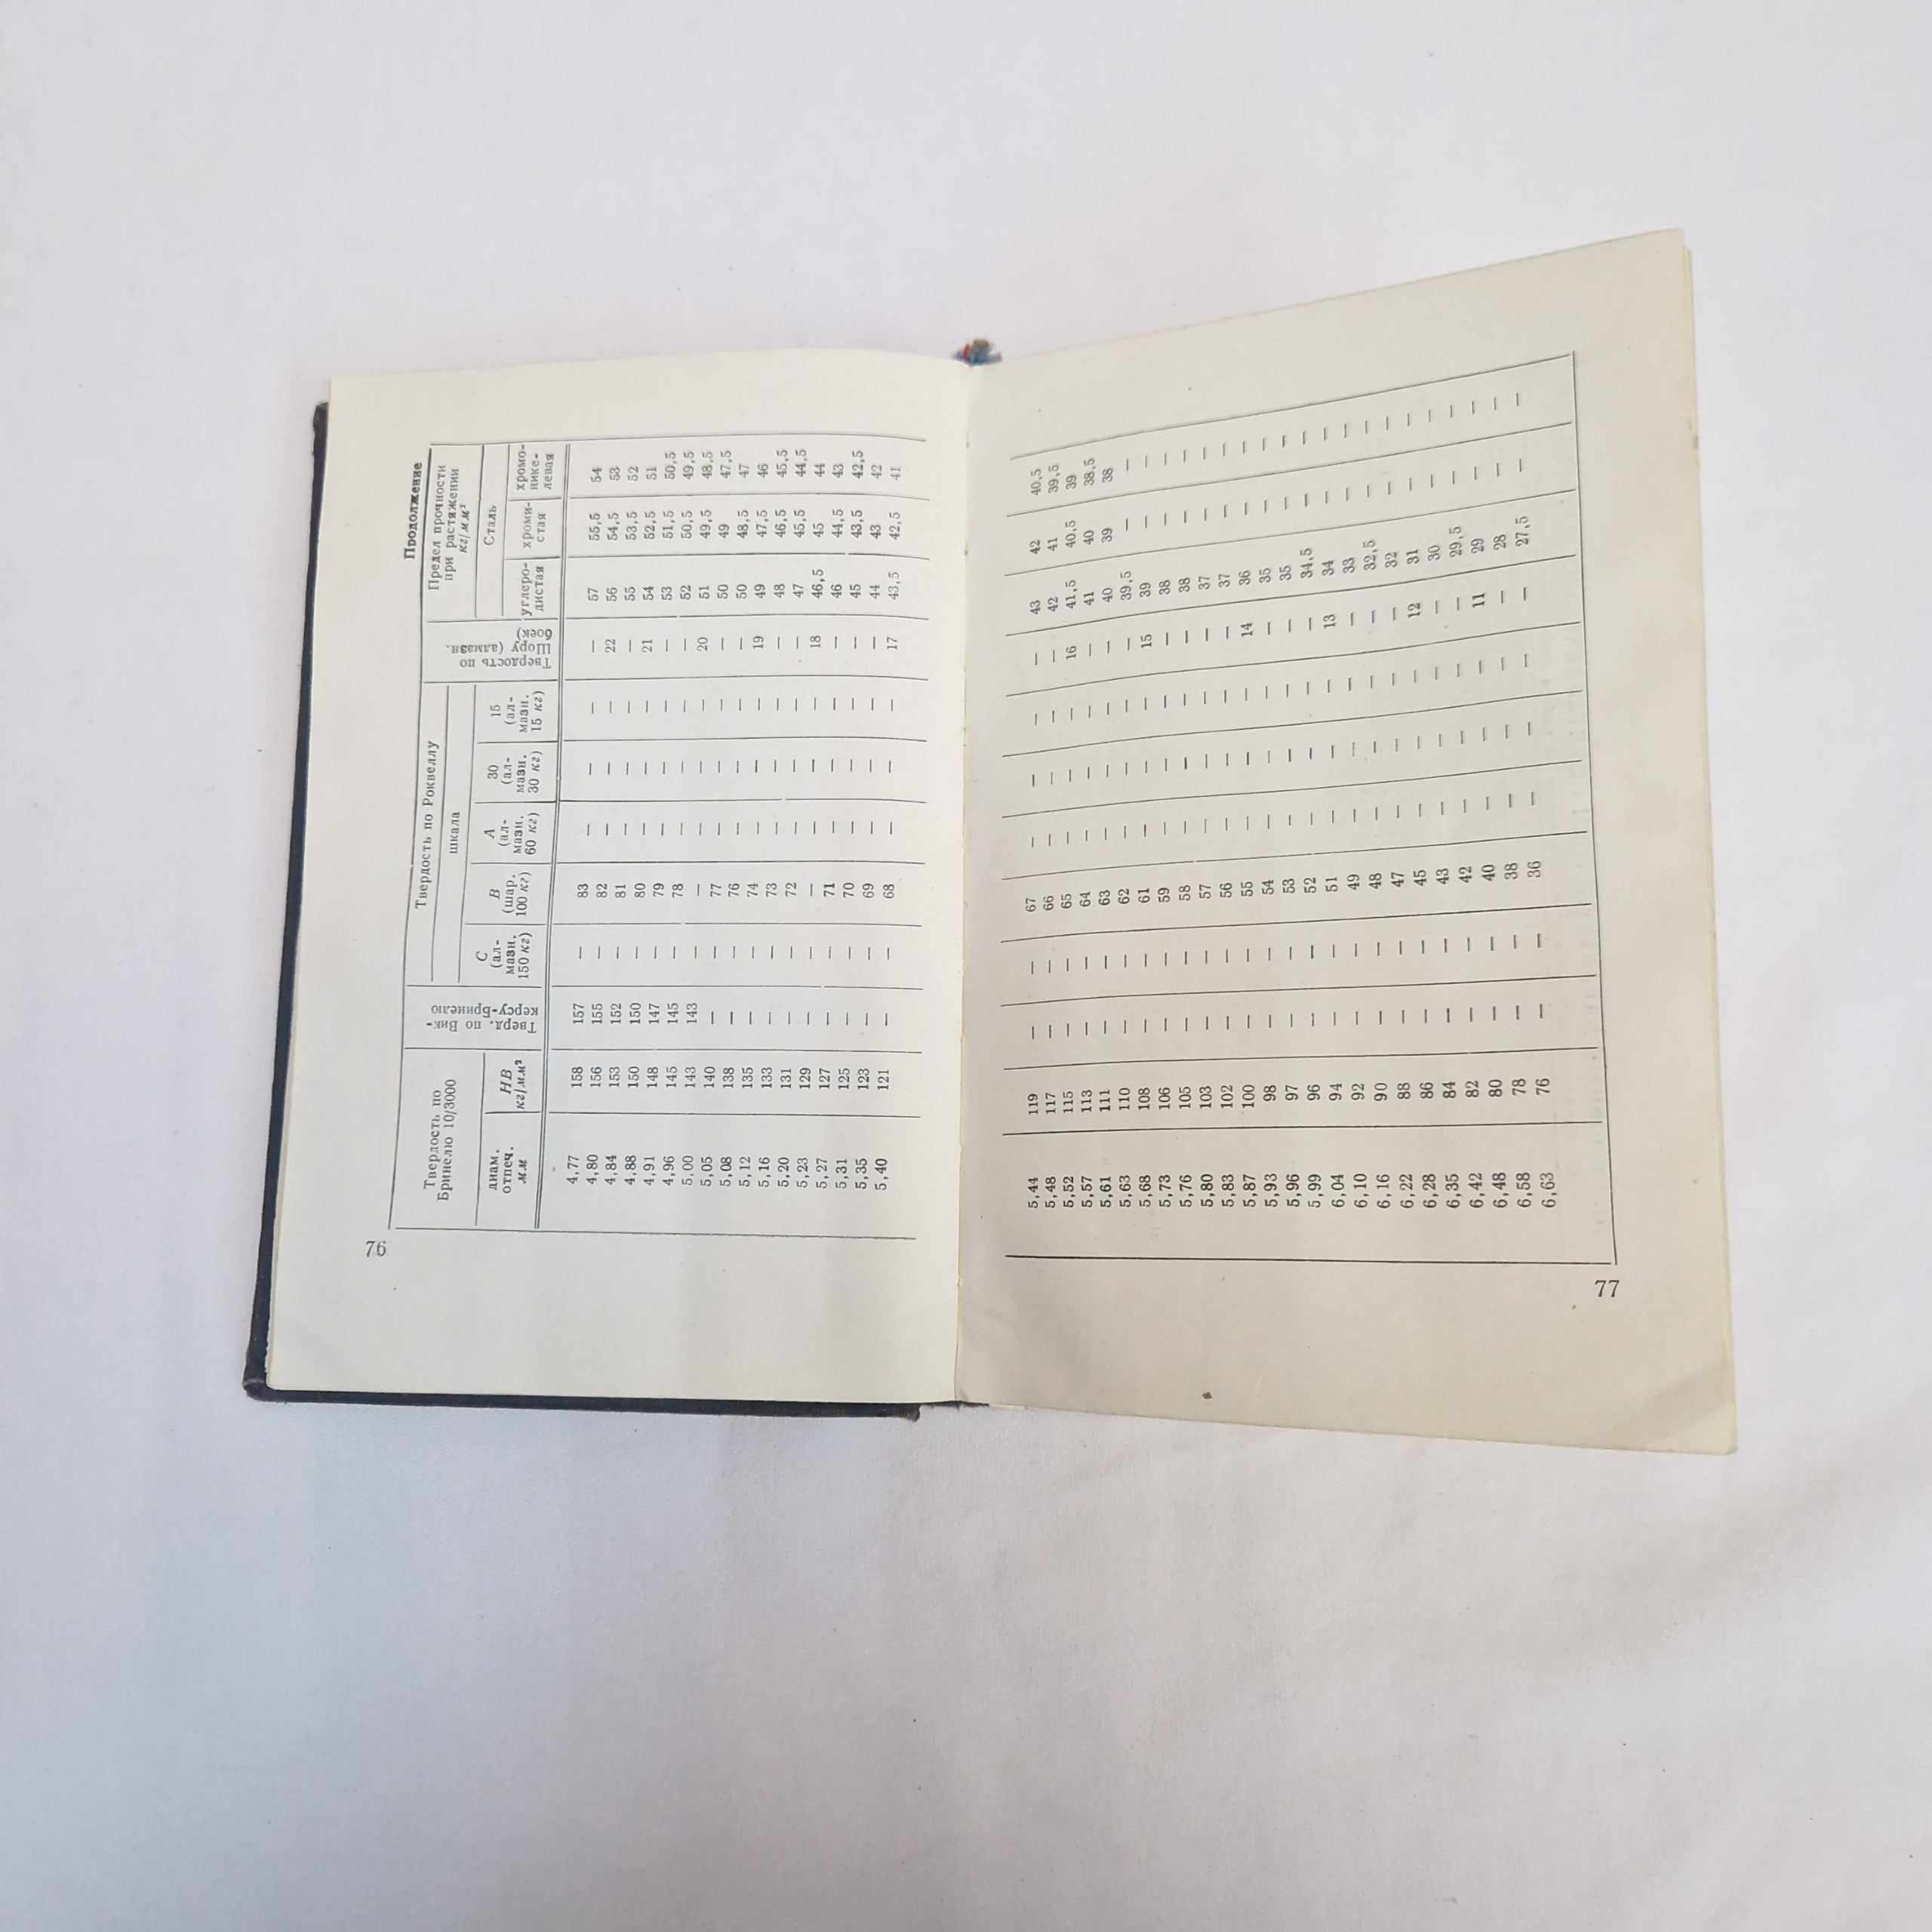 76
Продолжение
Твердость по Бринелю 10/3000
Тверд. по Вик-
керсу-Бринелю
Твердость по Роквеллу
шкала
Твердость по
Шору (алмазн.
боек)
Предел прочности
при растяжении
кг/мм²
Сталь
диам. отпеч. мм
HB кг/мм²
C (ал- мазн. 150 кг)
B (шар. 100 кг)
A (ал- мазн. 60 кг)
30 (ал- мазн. 30 кг)
15 (ал- мазн. 15 кг)
углеро- дистая
хроми- стая
хромо- нике- левая
4,77 158 157 — 83 — — — — 57 55,5 54
4,80 156 155 — 82 — — — 22 56 54,5 53
4,84 153 152 — 81 — — — — 55 53,5 52
4,88 150 150 — 80 — — — 21 54 52,5 51
4,91 148 147 — 79 — — — — 53 51,5 50,5
4,96 145 145 — 78 — — — — 52 50,5 49,5
5,00 143 143 — — — — — 20 51 49,5 48,5
5,05 140 — — 77 — — — — 50 49 47,5
5,08 138 — — 76 — — — — 50 48,5 47
5,12 135 — — 74 — — — 19 49 47,5 46
5,16 133 — — 73 — — — — 48 46,5 45,5
5,20 131 — — 72 — — — — 47 45,5 44,5
5,23 129 — — — — — — 18 46,5 45 44
5,27 127 — — 71 — — — — 46 44,5 43
5,31 125 — — 70 — — — — 45 43,5 42,5
5,35 123 — — 69 — — — — 44 43 42
5,40 121 — — 68 — — — 17 43,5 42,5 41
5,44 119 — — 67 — — — — 43 42 40,5
5,48 117 — — 66 — — — — 42 41 39,5
5,52 115 — — 65 — — — 16 41,5 40,5 39
5,57 113 — — 64 — — — — 41 40 38,5
5,61 111 — — 63 — — — — 40 39 38
5,63 110 — — 62 — — — — 39,5 — —
5,68 108 — — 61 — — — 15 39 — —
5,73 106 — — 59 — — — — 38 — —
5,76 105 — — 58 — — — — 38 — —
5,80 103 — — 57 — — — — 37 — —
5,83 102 — — 56 — — — — 37 — —
5,87 100 — — 55 — — — 14 36 — —
5,93 98 — — 54 — — — — 35 — —
5,96 97 — — 53 — — — — 35 — —
5,99 96 — — 52 — — — — 34,5 — —
6,04 94 — — 51 — — — 13 34 — —
6,10 92 — — 49 — — — — 33 — —
6,16 90 — — 48 — — — — 32,5 — —
6,22 88 — — 47 — — — — 32 — —
6,28 86 — — 45 — — — 12 31 — —
6,35 84 — — 43 — — — — 30 — —
6,42 82 — — 42 — — — — 29,5 — —
6,48 80 — — 40 — — — 11 29 — —
6,58 78 — — 38 — — — — 28 — —
6,63 76 — — 36 — — — — 27,5 — —
77